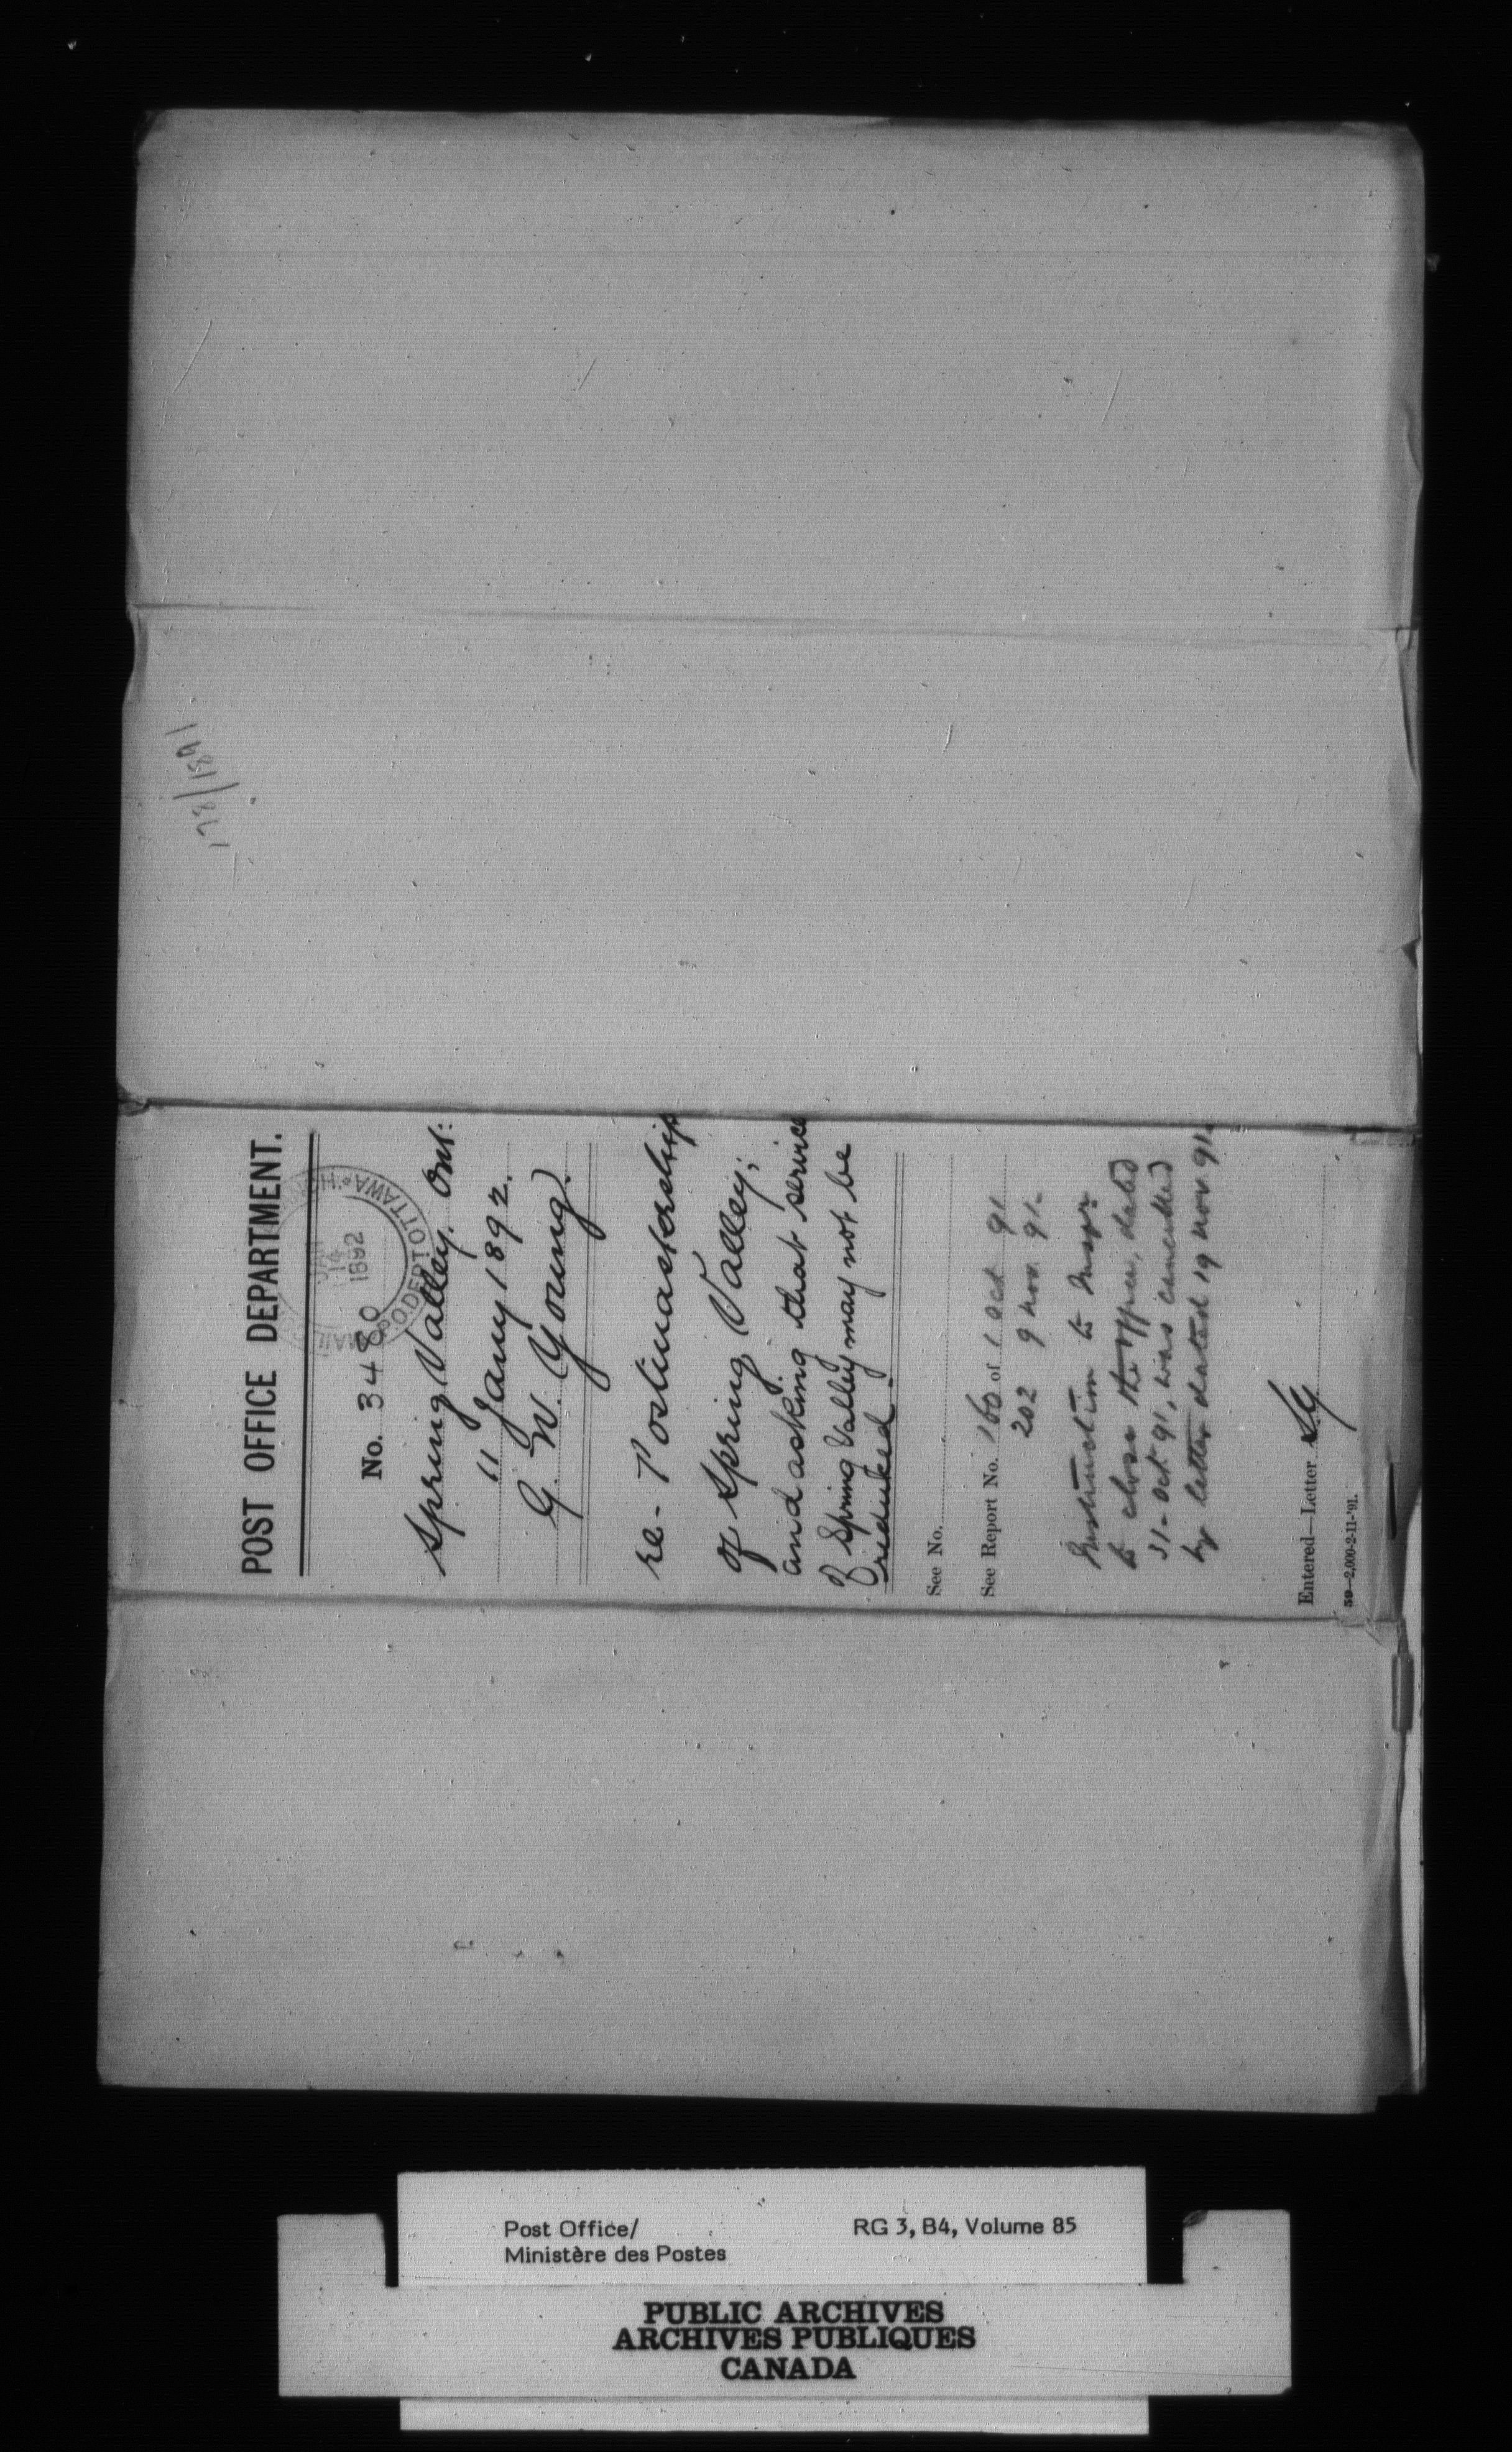 178/1891
POST OFFICE DEPARTMENT.
No. 3480
MAIL P.O. DEPT OTTAWA
JAN
14
1892
Spring Valley. Ont:
11 Jany 1892.
G. W. Young.
re- Postmastership
of Spring Valley;
and asking that service
of Spring Valley may not be
reduked.
See No.
See Report No. 160 of 1 Oct 91
202 9 Nov. 91-
Instruction to Inspr
to close the office, dated
31- Oct. 91, was cancelled
by letter dated 19 Nov. 91-
Entered—Letter
50—2,000-2-11-'91.
Post Office/
Ministère des Postes
RG 3, B4, Volume 85
PUBLIC ARCHIVES
ARCHIVES PUBLIQUES
CANADA